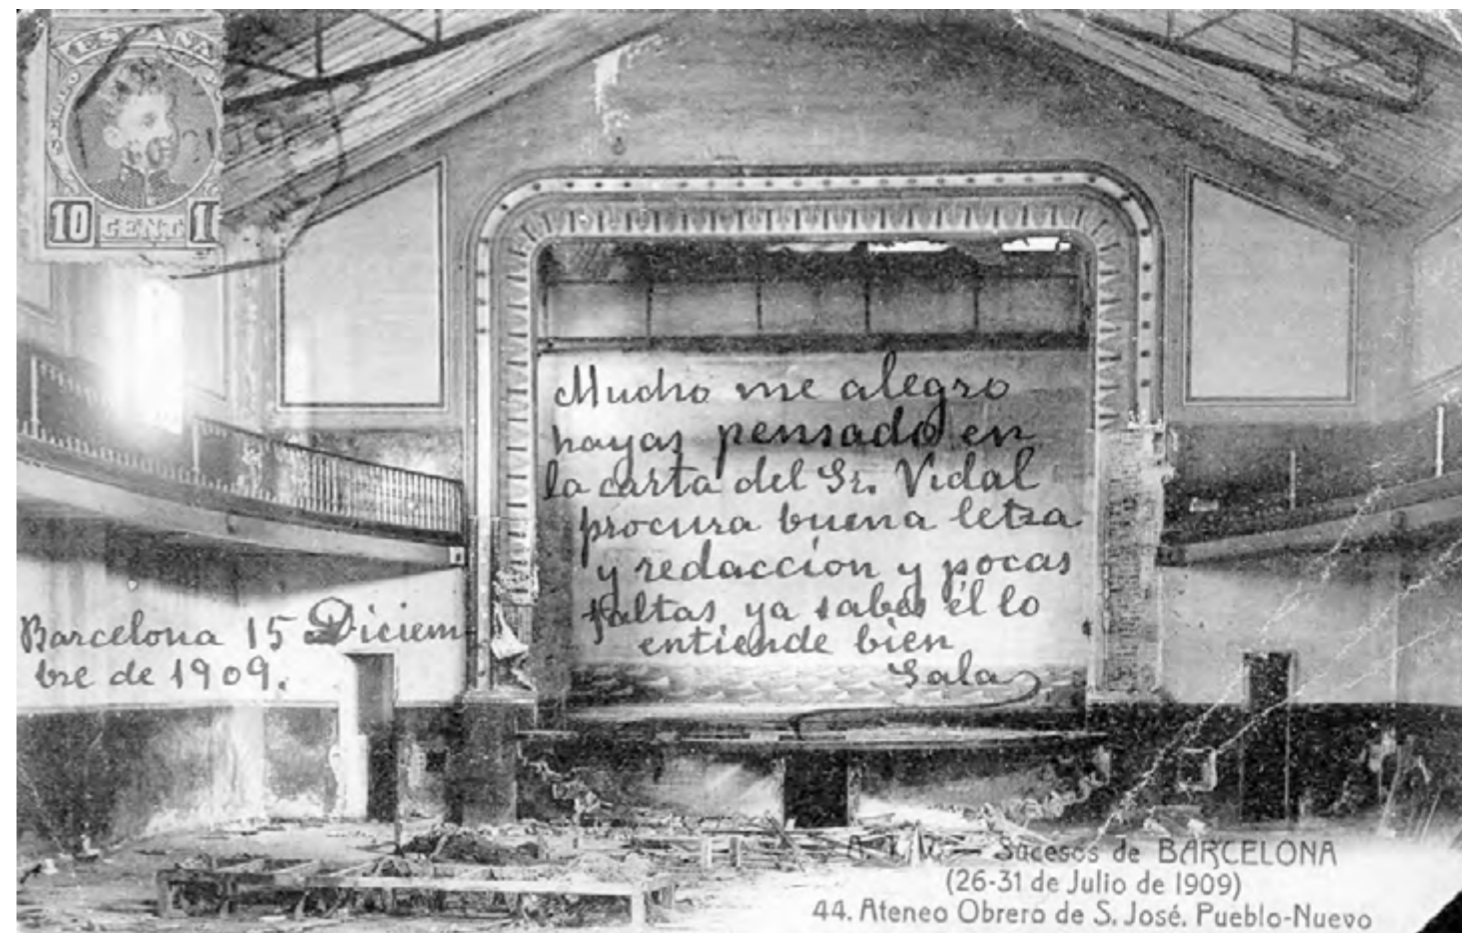 ESPAÑA
10 CENT. 1
Mucho me alegro
hayas pensado en
la carta del Sr. Vidal
procura buena letra
y redaccion y pocas
faltas, ya sabes él lo
entiende bien
Sala
Barcelona 15 Diciem
bre de 1909.
Sucesos de BARCELONA
(26-31 de Julio de 1909)
44. Ateneo Obrero de S. José. Pueblo-Nuevo